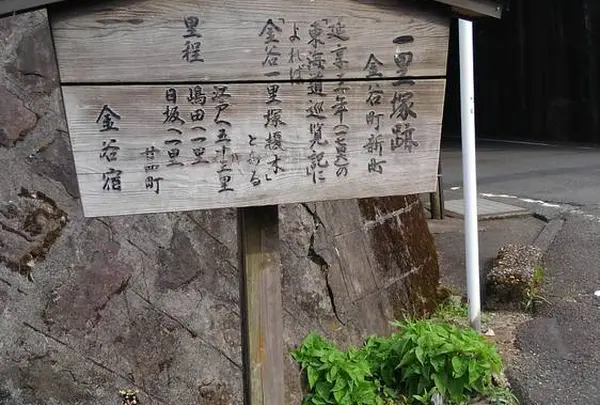 一里塚跡
金谷町新町
延享三年(一七四六)の
「東海道巡覧記に
よれば
「金谷一里塚榎木」
とある
里程
江戸へ五十三里
嶋田へ一里
日坂へ一里
廿四町
金谷宿